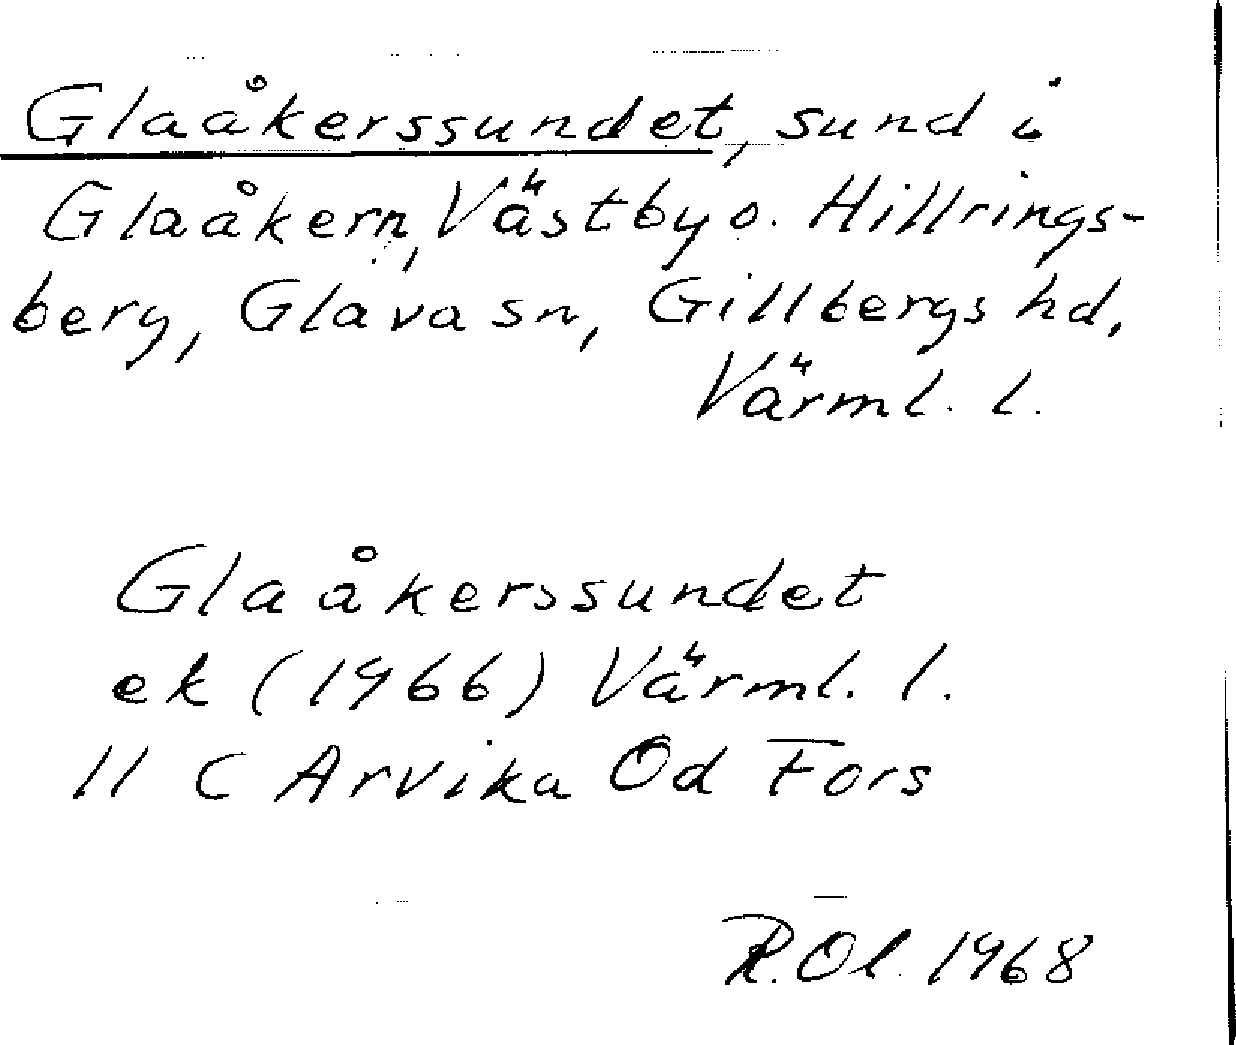 Glaåkerssundet, sund i
Glaåkern, Västby o. Hillrings-
berg, Glava sn, Gillbergs hd,
Värml. l.
Glaåkerssundet
ek (1966) Värml. l.
11 C Arvika Od Fors
R. Ol. 1968